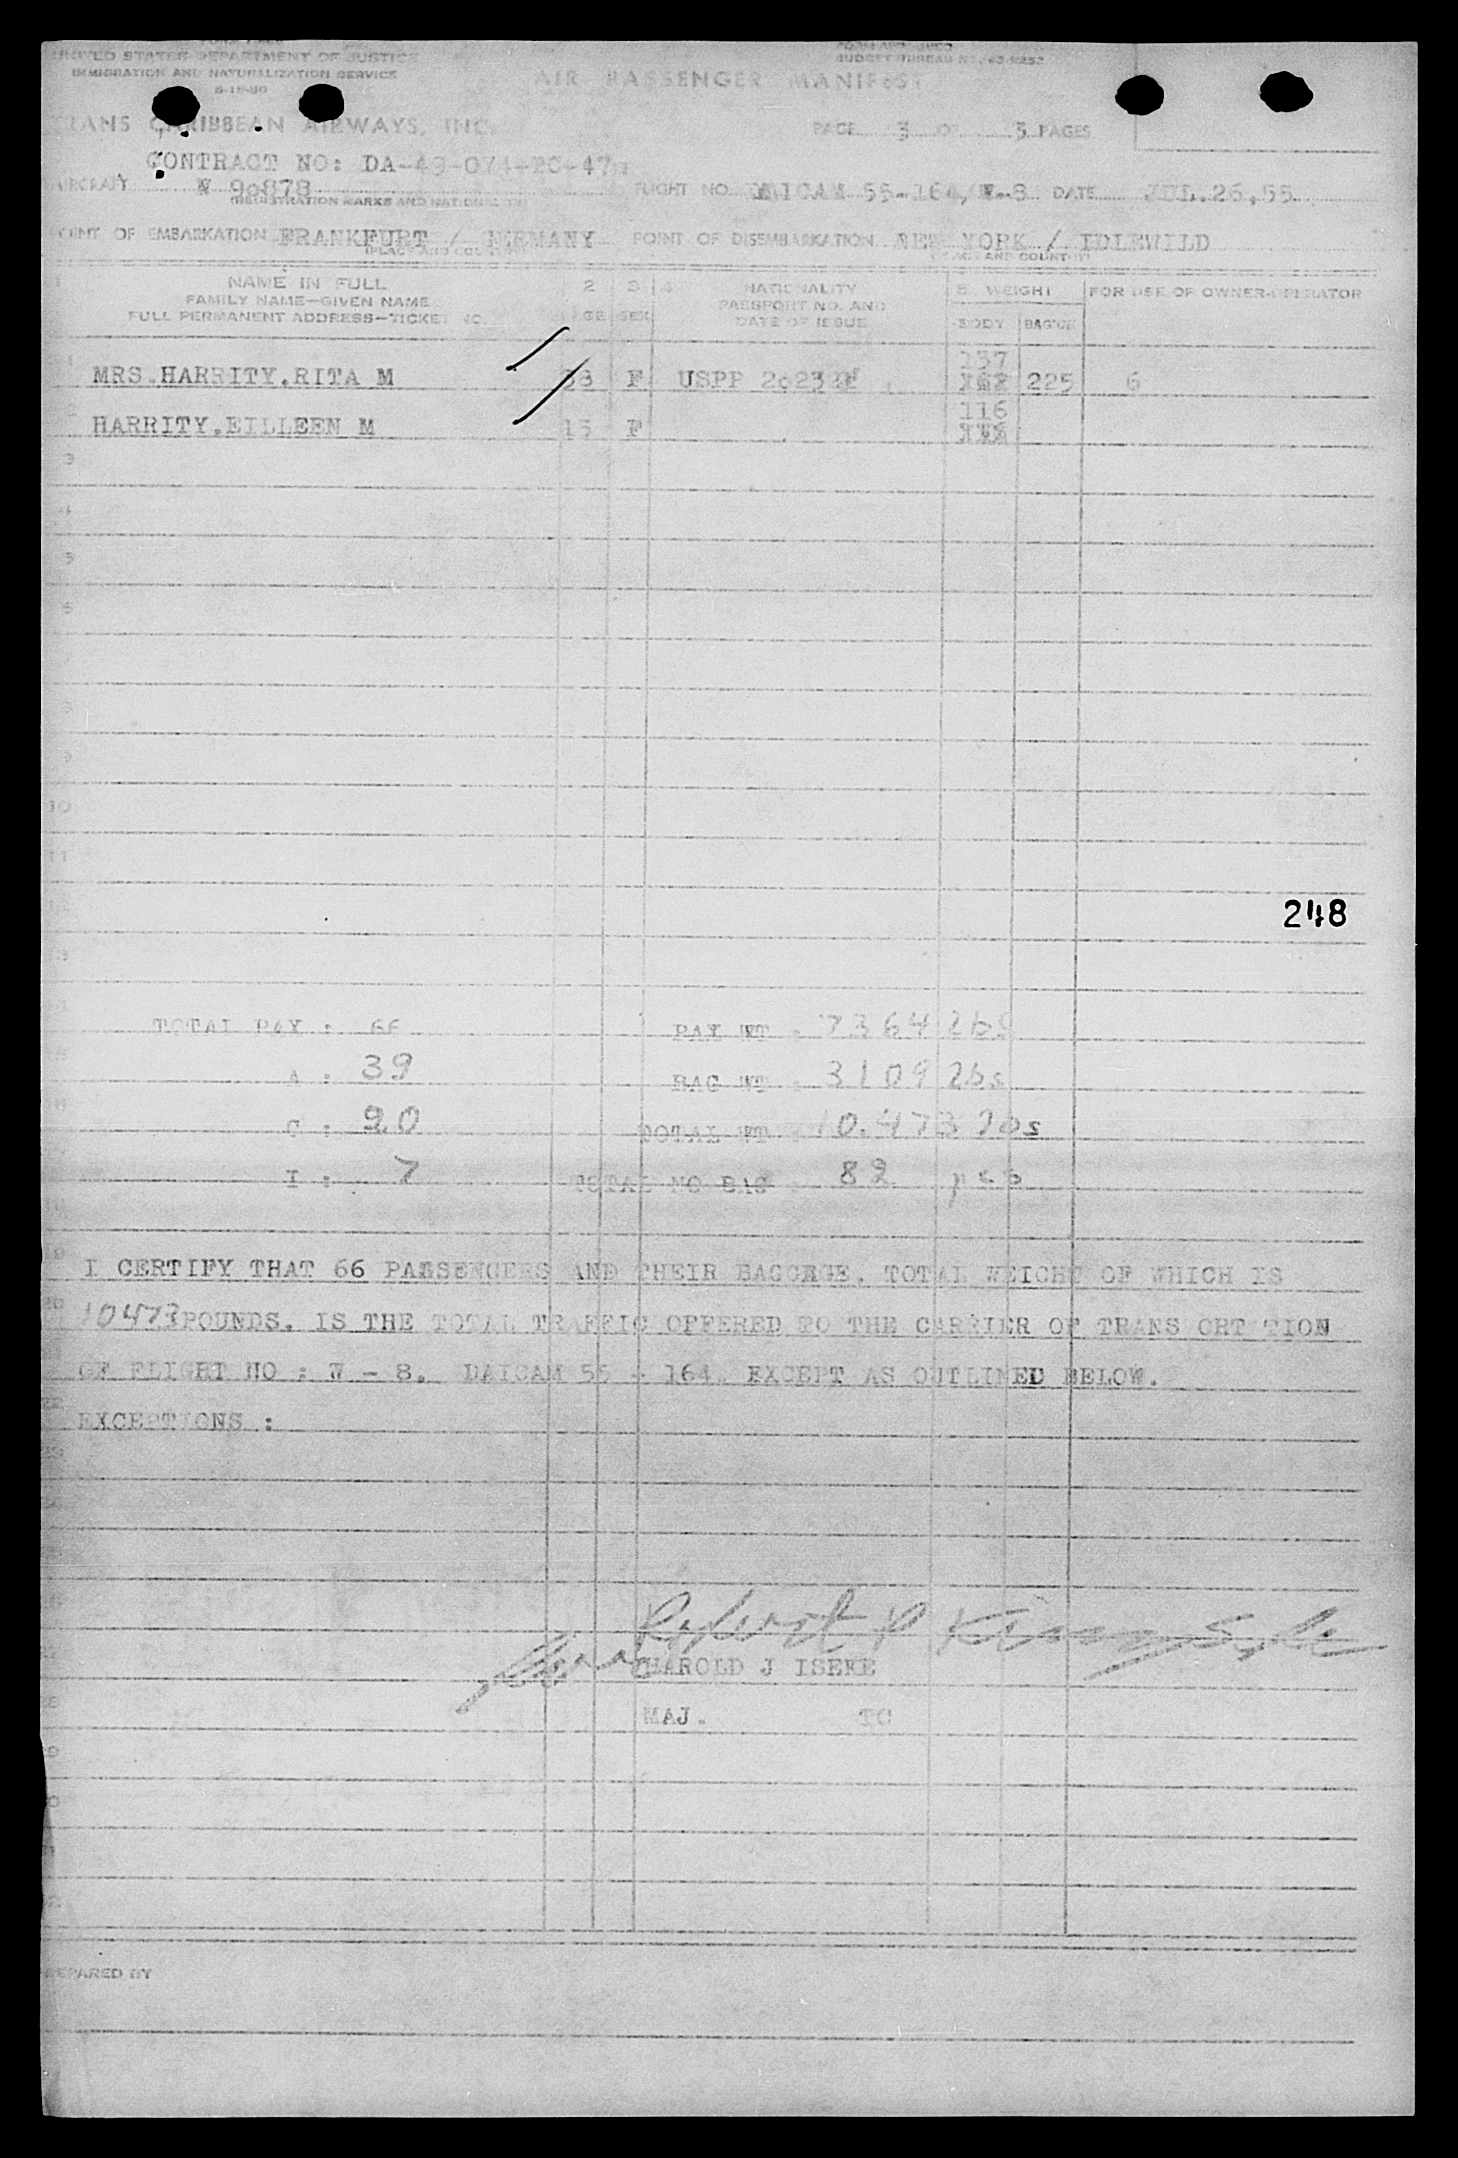 UNITED STATES DEPARTMENT OF JUSTICE
IMMIGRATION AND NATURALIZATION SERVICE
AIR PASSENGER MANIFEST
TRANS CARIBBEAN AIRWAYS, INC.
PAGE 3 OF 5 PAGES
CONTRACT NO: DA-49-074-
AIRCRAFT N 90878 FLIGHT NO. DAICAM 55-164/W-8 DATE JUL.26,55
(REGISTRATION MARKS AND NATIONALITY)
POINT OF EMBARKATION FRANKFURT / GERMANY POINT OF DISEMBARKATION NEW YORK / IDLEWILD
(PLACE AND COUNTRY) (PLACE AND COUNTRY)
NAME IN FULL 2 3 4 NATIONALITY 5. WEIGHT FOR USE OF OWNER-OPERATOR
FAMILY NAME—GIVEN NAME PASSPORT NO. AND
FULL PERMANENT ADDRESS—TICKET NO. AGE SEX DATE OF ISSUE BODY BAG'GE
137
MRS.HARRITY.RITA M 38 F USPP 225 6
116
HARRITY.EILLEEN M 15 F
3
4
5
6
9
10
11
248
TOTAL PAX : 66 PAX WT : 7364 lbs
A : 39 BAG WT : 3109 lbs
C : 20 TOTAL WT : 10.473 lbs
I : 7 TOTAL NO BAG : 82 pcs
I CERTIFY THAT 66 PASSENGERS AND THEIR BAGGAGE. TOTAL WEIGHT OF WHICH IS
10473 POUNDS. IS THE TOTAL TRAFFIC OFFERED TO THE CARRIER OF TRANS ORT TION
OF FLIGHT NO : W - 8. DAICAM 55 - 164. EXCEPT AS OUTLINED BELOW.
EXCEPTIONS :
HAROLD J ISEKE
MAJ. TC
PREPARED BY